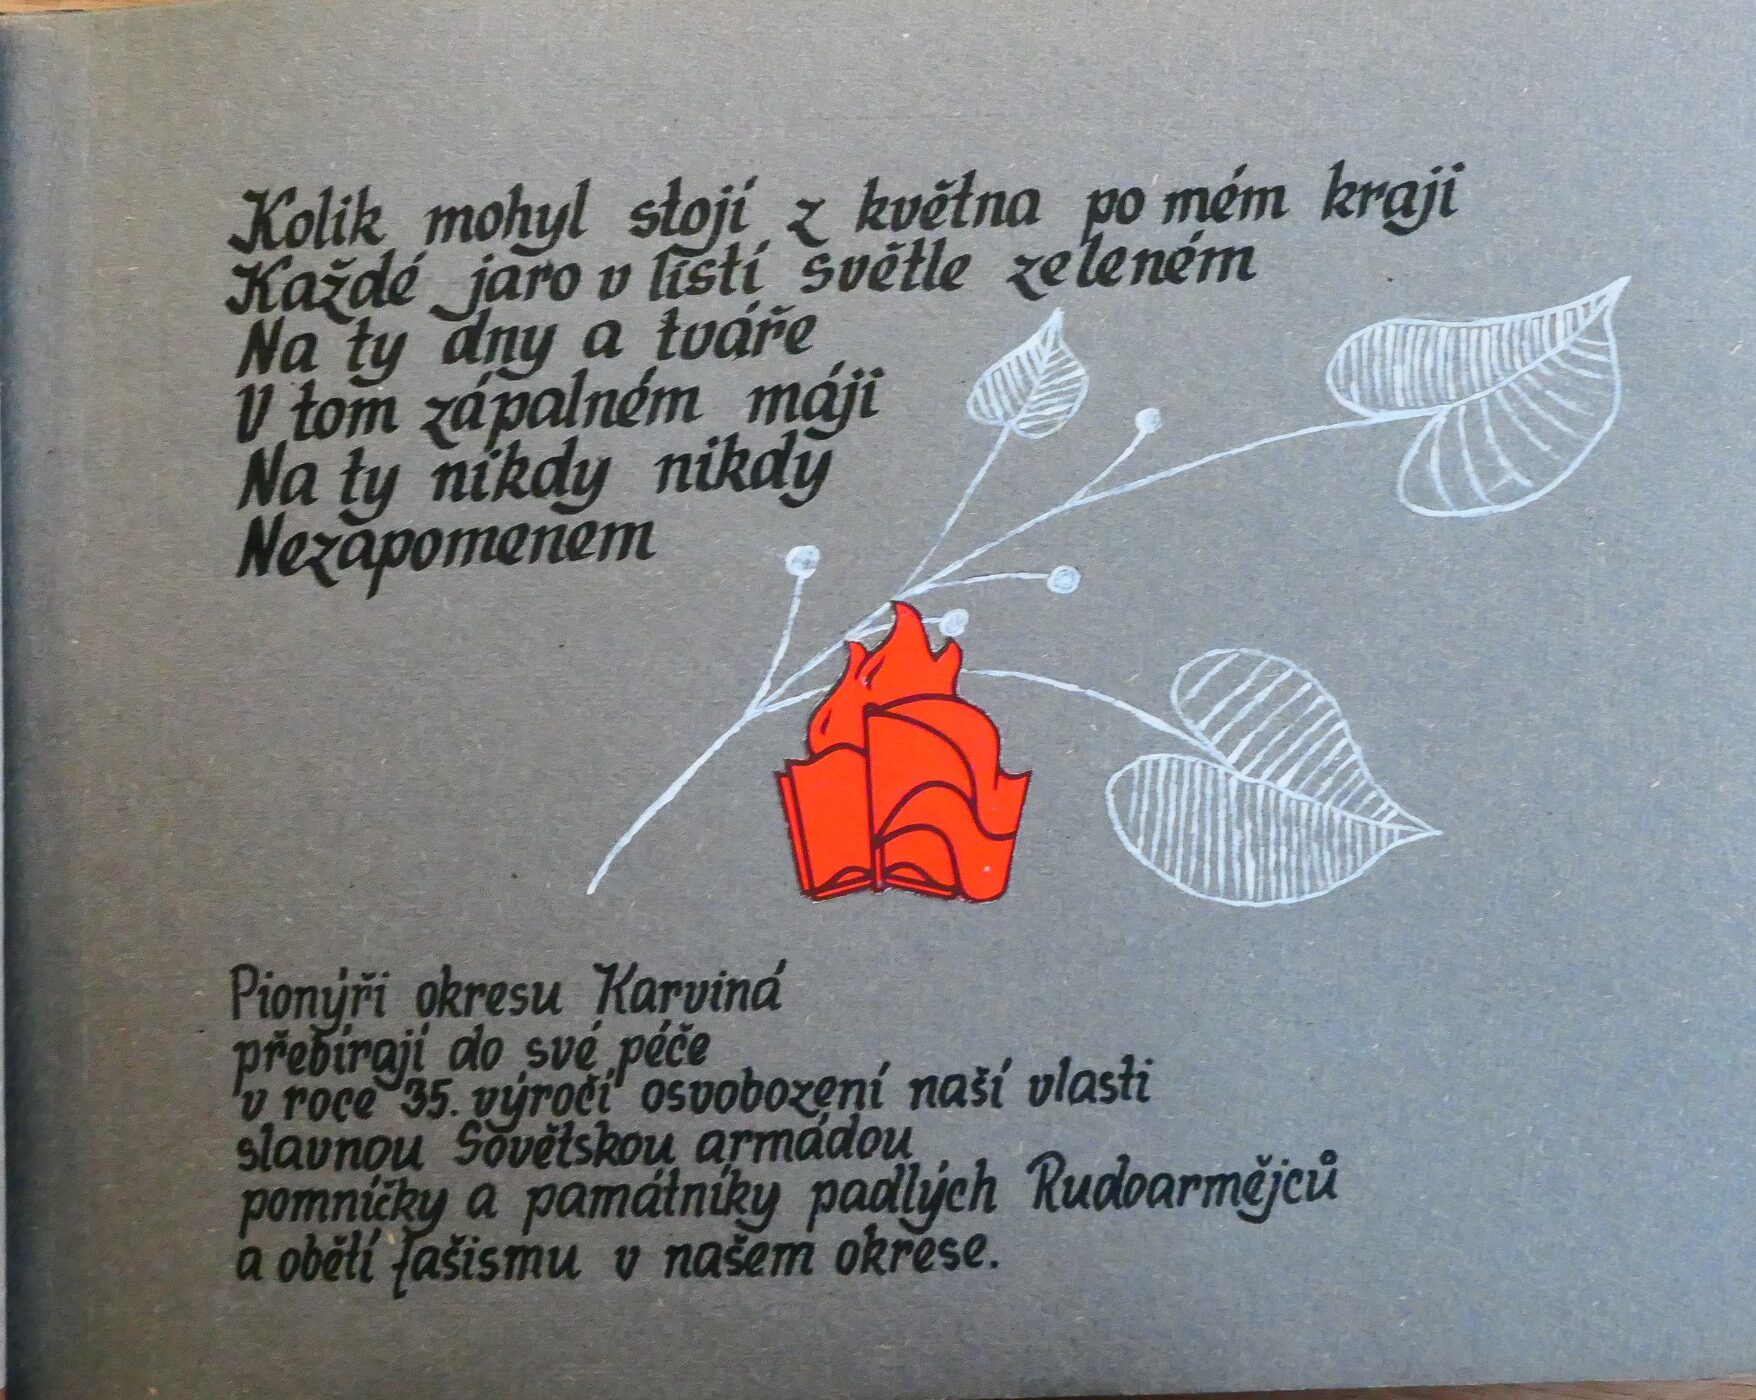 Kolik mohyl stojí z května po mém kraji
Každé jaro v listí světle zeleném
Na ty dny a tváře
V tom zápalném máji
Na ty nikdy nikdy
Nezapomenem
Pionýři okresu Karviná
přebírají do své péče
v roce 35. výročí osvobození naší vlasti
slavnou Sovětskou armádou
pomníčky a památníky padlých Rudoarmějců
a obětí fašismu v našem okrese.